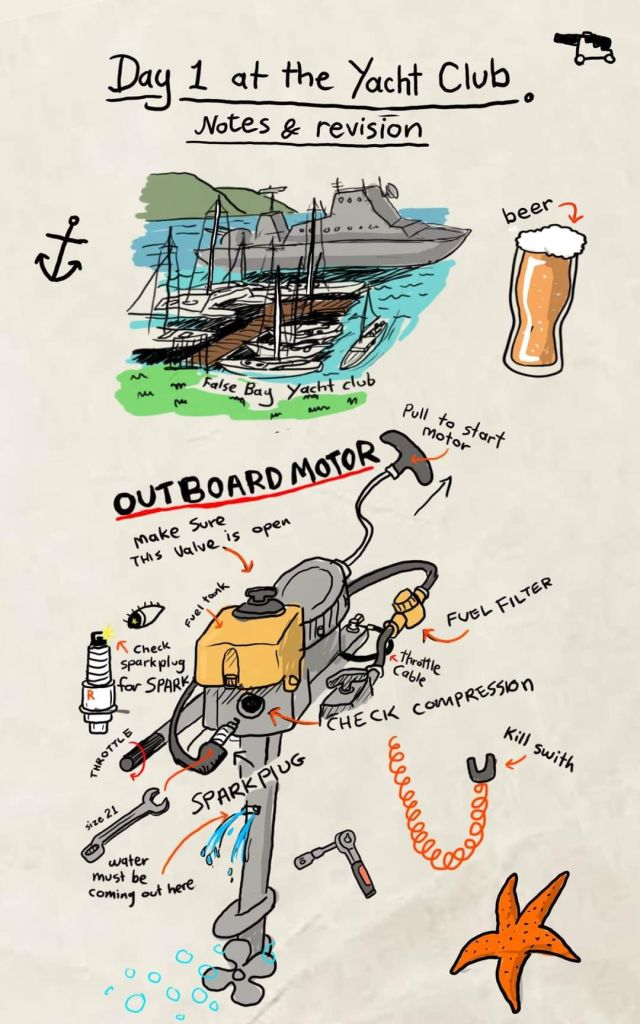 Day 1 at the Yacht Club.
Notes & revision
beer
False Bay Yacht club
Pull to start
motor
OUTBOARD MOTOR
make sure
THIS Valve is open
Fuel tank
FUEL FILTER
check
sparkplug
for SPARK
R
Throttle
Cable
CHECK COMPRESSION
THROTTLE
SPARKPLUG
Kill swith
size 21
water
must be
coming out here